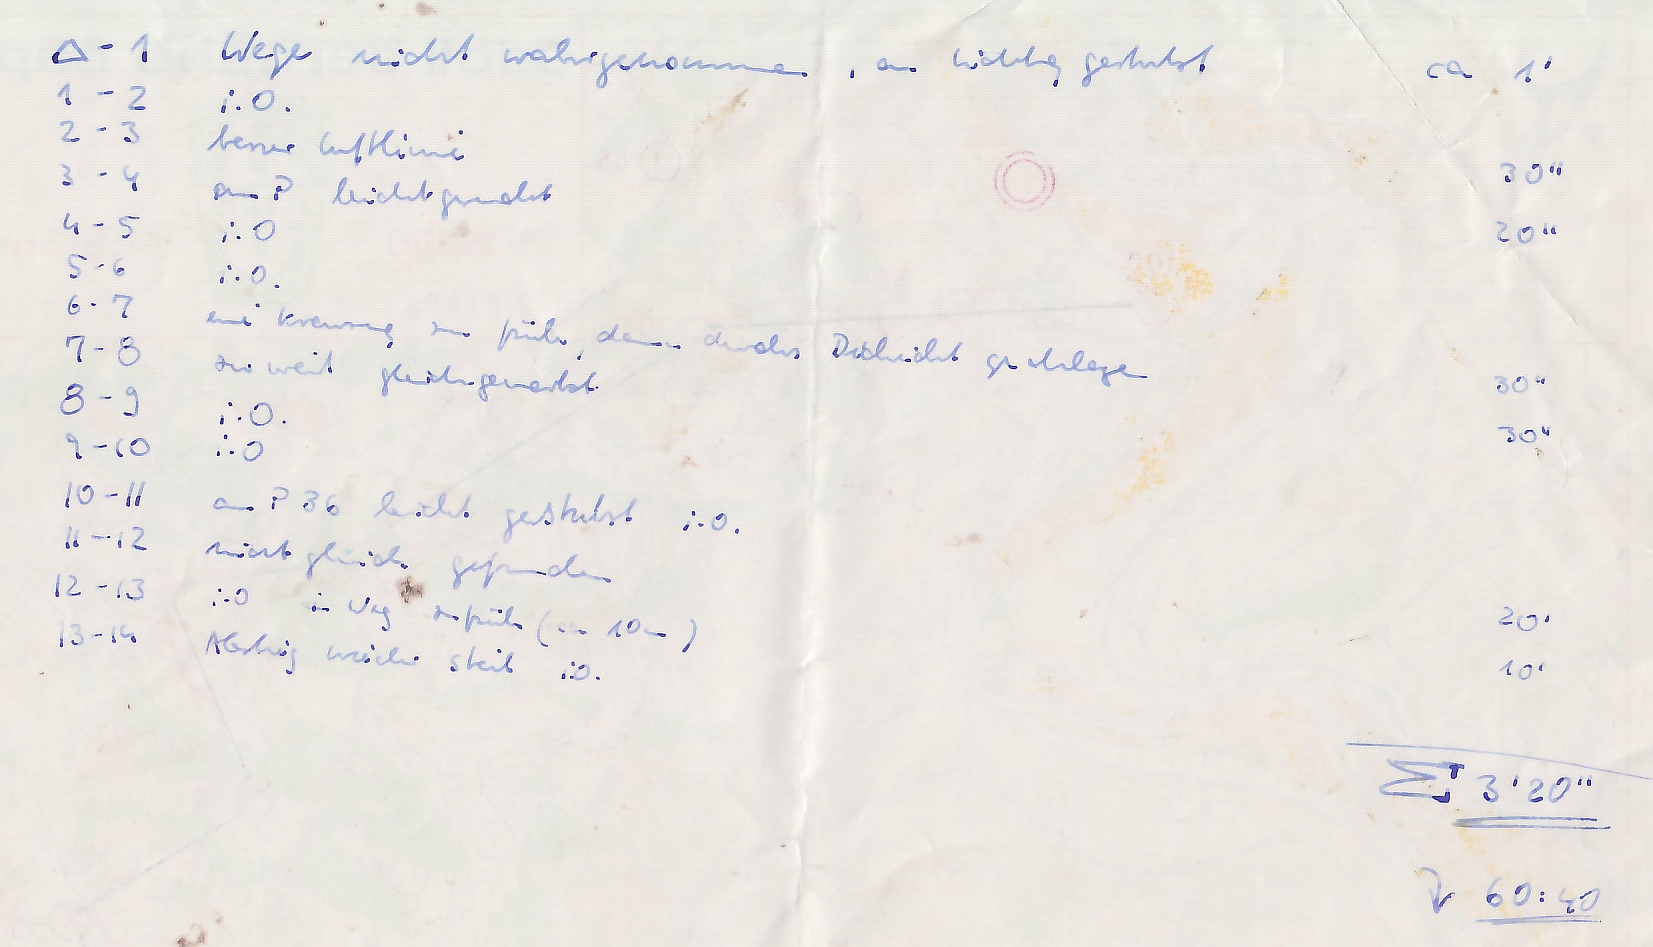 △ - 1 Wege nicht wahrgenommen, an Lichtung gestutzt ca 1'
1 - 2 i.O.
2 - 3 besser Luftlinie 30"
3 - 4 am P leicht gesucht 20"
4 - 5 i.O
5 - 6 i.O.
6 - 7 eine Kreuzung zu früh, dann durchs Dickicht geschlagen 30"
7 - 8 zu weit gleich gemerkt 30"
8 - 9 i.O.
9 - 10 i.O
10 - 11 am P 36 leicht gestutzt i.O.
11 - 12 nicht gleich gefunden 20'
12 - 13 i.O in Weg zu früh (ca 10m) 10'
13 - 14 Abstieg steil i.O.
Σ 3'20"
60:40